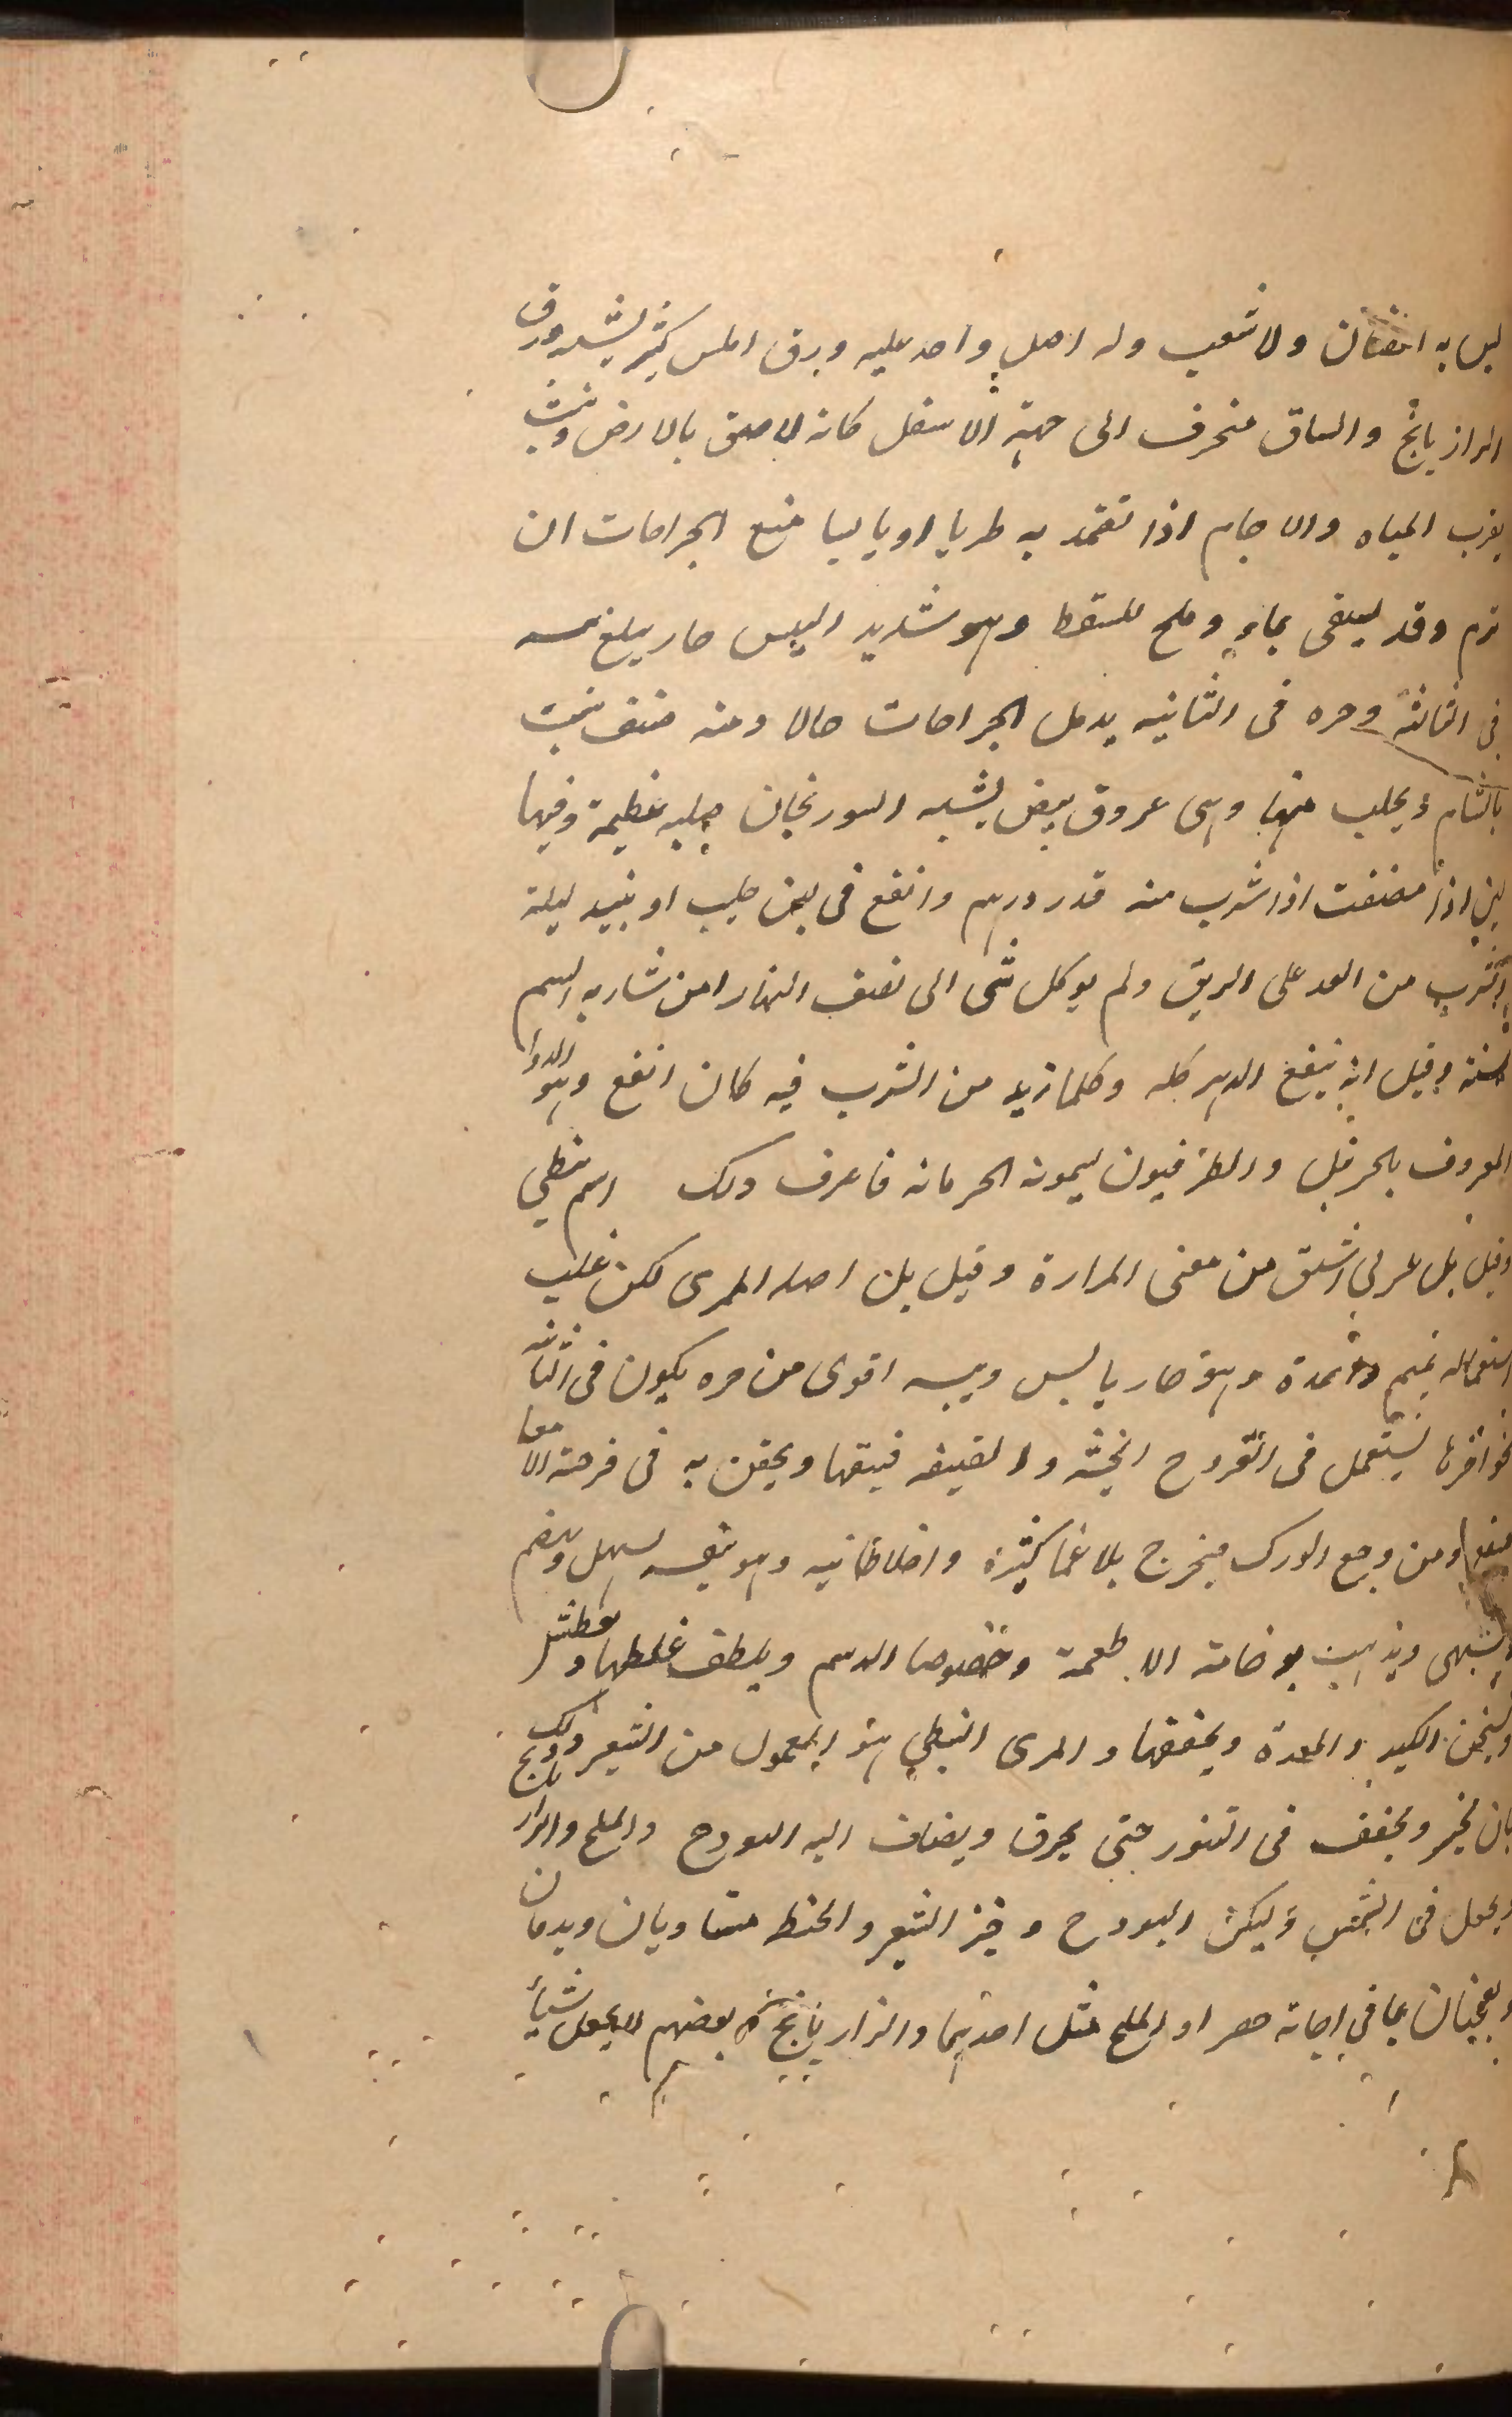 ليس به اغصان ولا شعب وله اصل واحد عليه ورق املس كثير يشبه ورق
الرازيانج والساق منحرف الى جهة الاسفل كانه لاصق بالارض وينبت
بقرب المياه والاجام اذا تضمد به طريا او يابسا منع الجراحات ان
ترم وقد يسقى بماء وملح للسقط وهو شديد اليبس حار يبلغ يبسه
فى الثالثة وحره فى الثانيه يدمل الجراحات حالا ومنه صنف ينبت
بالشام ويجلب منها وهى عروق بيض يشبه السورنجان صلبه عظيمة وفيها
لين اذا مضغت اذا شرب منه قدر درهم وانقع فى لبن حليب او نبيد ليلة
وشرب من الغد على الريق ولم يوكل شى الى نصف النهار امن شاربه السم
لسنة وقيل انه ينفع الدهر كله وكلما زيد من الشرب فيه كان انفع وهو الدوا
المعروف بالحرفيل والطرفيون يسمونه الحرمانه فاعرف ذلك اسم نبطي
وقيل بل عربي اشتق من معنى المرارة وقيل بل اصله الممرى لكن غلب
استعماله بميم واحدة وهو حار يابس ويبسه اقوى من حره يكون فى الثانيه
نحو اخرها يستعمل فى القروح الخبيثه والعفيفه فينقيها ويحقن به فى قرحة الامعا
فينفعها ومن وجع الورك فيخرج بلاغما كثيرة واخلاطا نيه وهو بنفسه يسهل ويهضم
ويشهى ويذهب بوخامة الاطعمة وخصوصا الدسم ويلطف غلظها ويعطش
ويسخن الكبد والمعدة ويجففها والمرى النبطي هو المعمول من الشعير وذلك
بان يخبز ويجفف فى التنور حتى يحرق ويضاف اليه البودج والملح والرازيانج
ويجعل فى الشمس وليكن البودج وخبز الشعير والحنط متساويان ويدمان
ويعجنان بما في اجانة خضرا والملح مثل احدهما والرازيانج وبعضهم لا يجعل شيأ